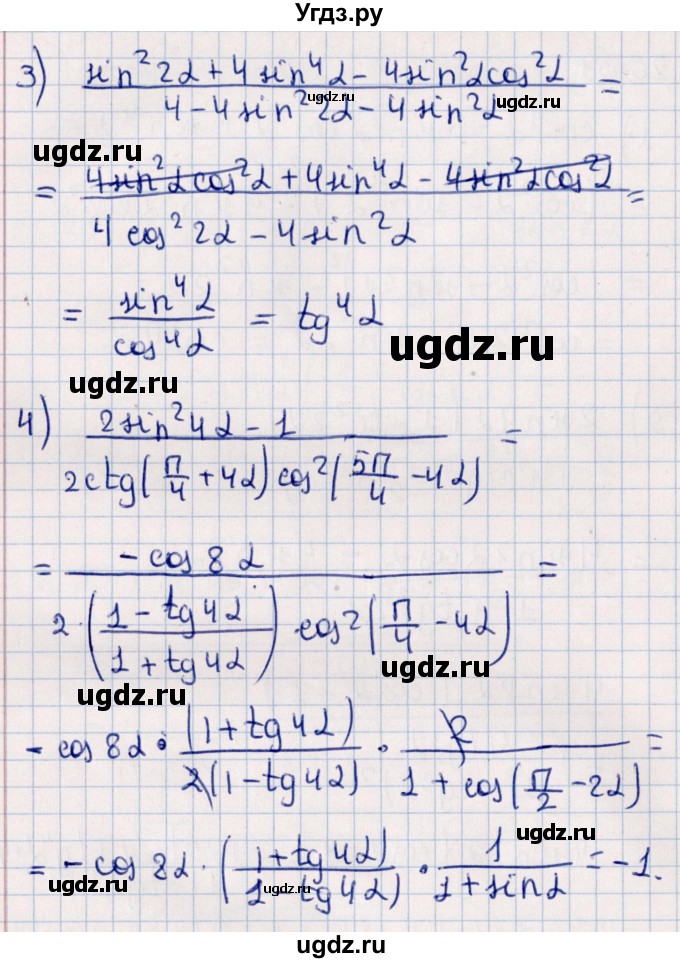 Угдз.ру
3) (sin²2α + 4sin⁴α − 4sin²αcos²α)/(4 − 4sin²2α − 4sin²α) =
ugdz.ru
ugdz.ru
= (4sin²αcos²α + 4sin⁴α − 4sin²αcos²α)/(4cos²2α − 4sin²α) =
ugdz.ru
ugdz.ru
= sin⁴α/cos⁴α = tg⁴α
ugdz.ru
ugdz.ru
4) (2sin²4α − 1)/(2ctg(π/4 + 4α)cos²(5π/4 − 4α)) =
ugdz.ru
ugdz.ru
= −cos8α/(2·((1 − tg4α)/(1 + tg4α))·cos²(π/4 − 4α)) =
ugdz.ru
ugdz.ru
−cos8α · (1 + tg4α)/(2(1 − tg4α)) · 2/(1 + cos(π/2 − 2α)) =
ugdz.ru
ugdz.ru
= −cos8α · ((1 + tg4α)/(1 − tg4α)) · 1/(1 + sinα) = −1.
ugdz.ru
ugdz.ru
ugdz.ru